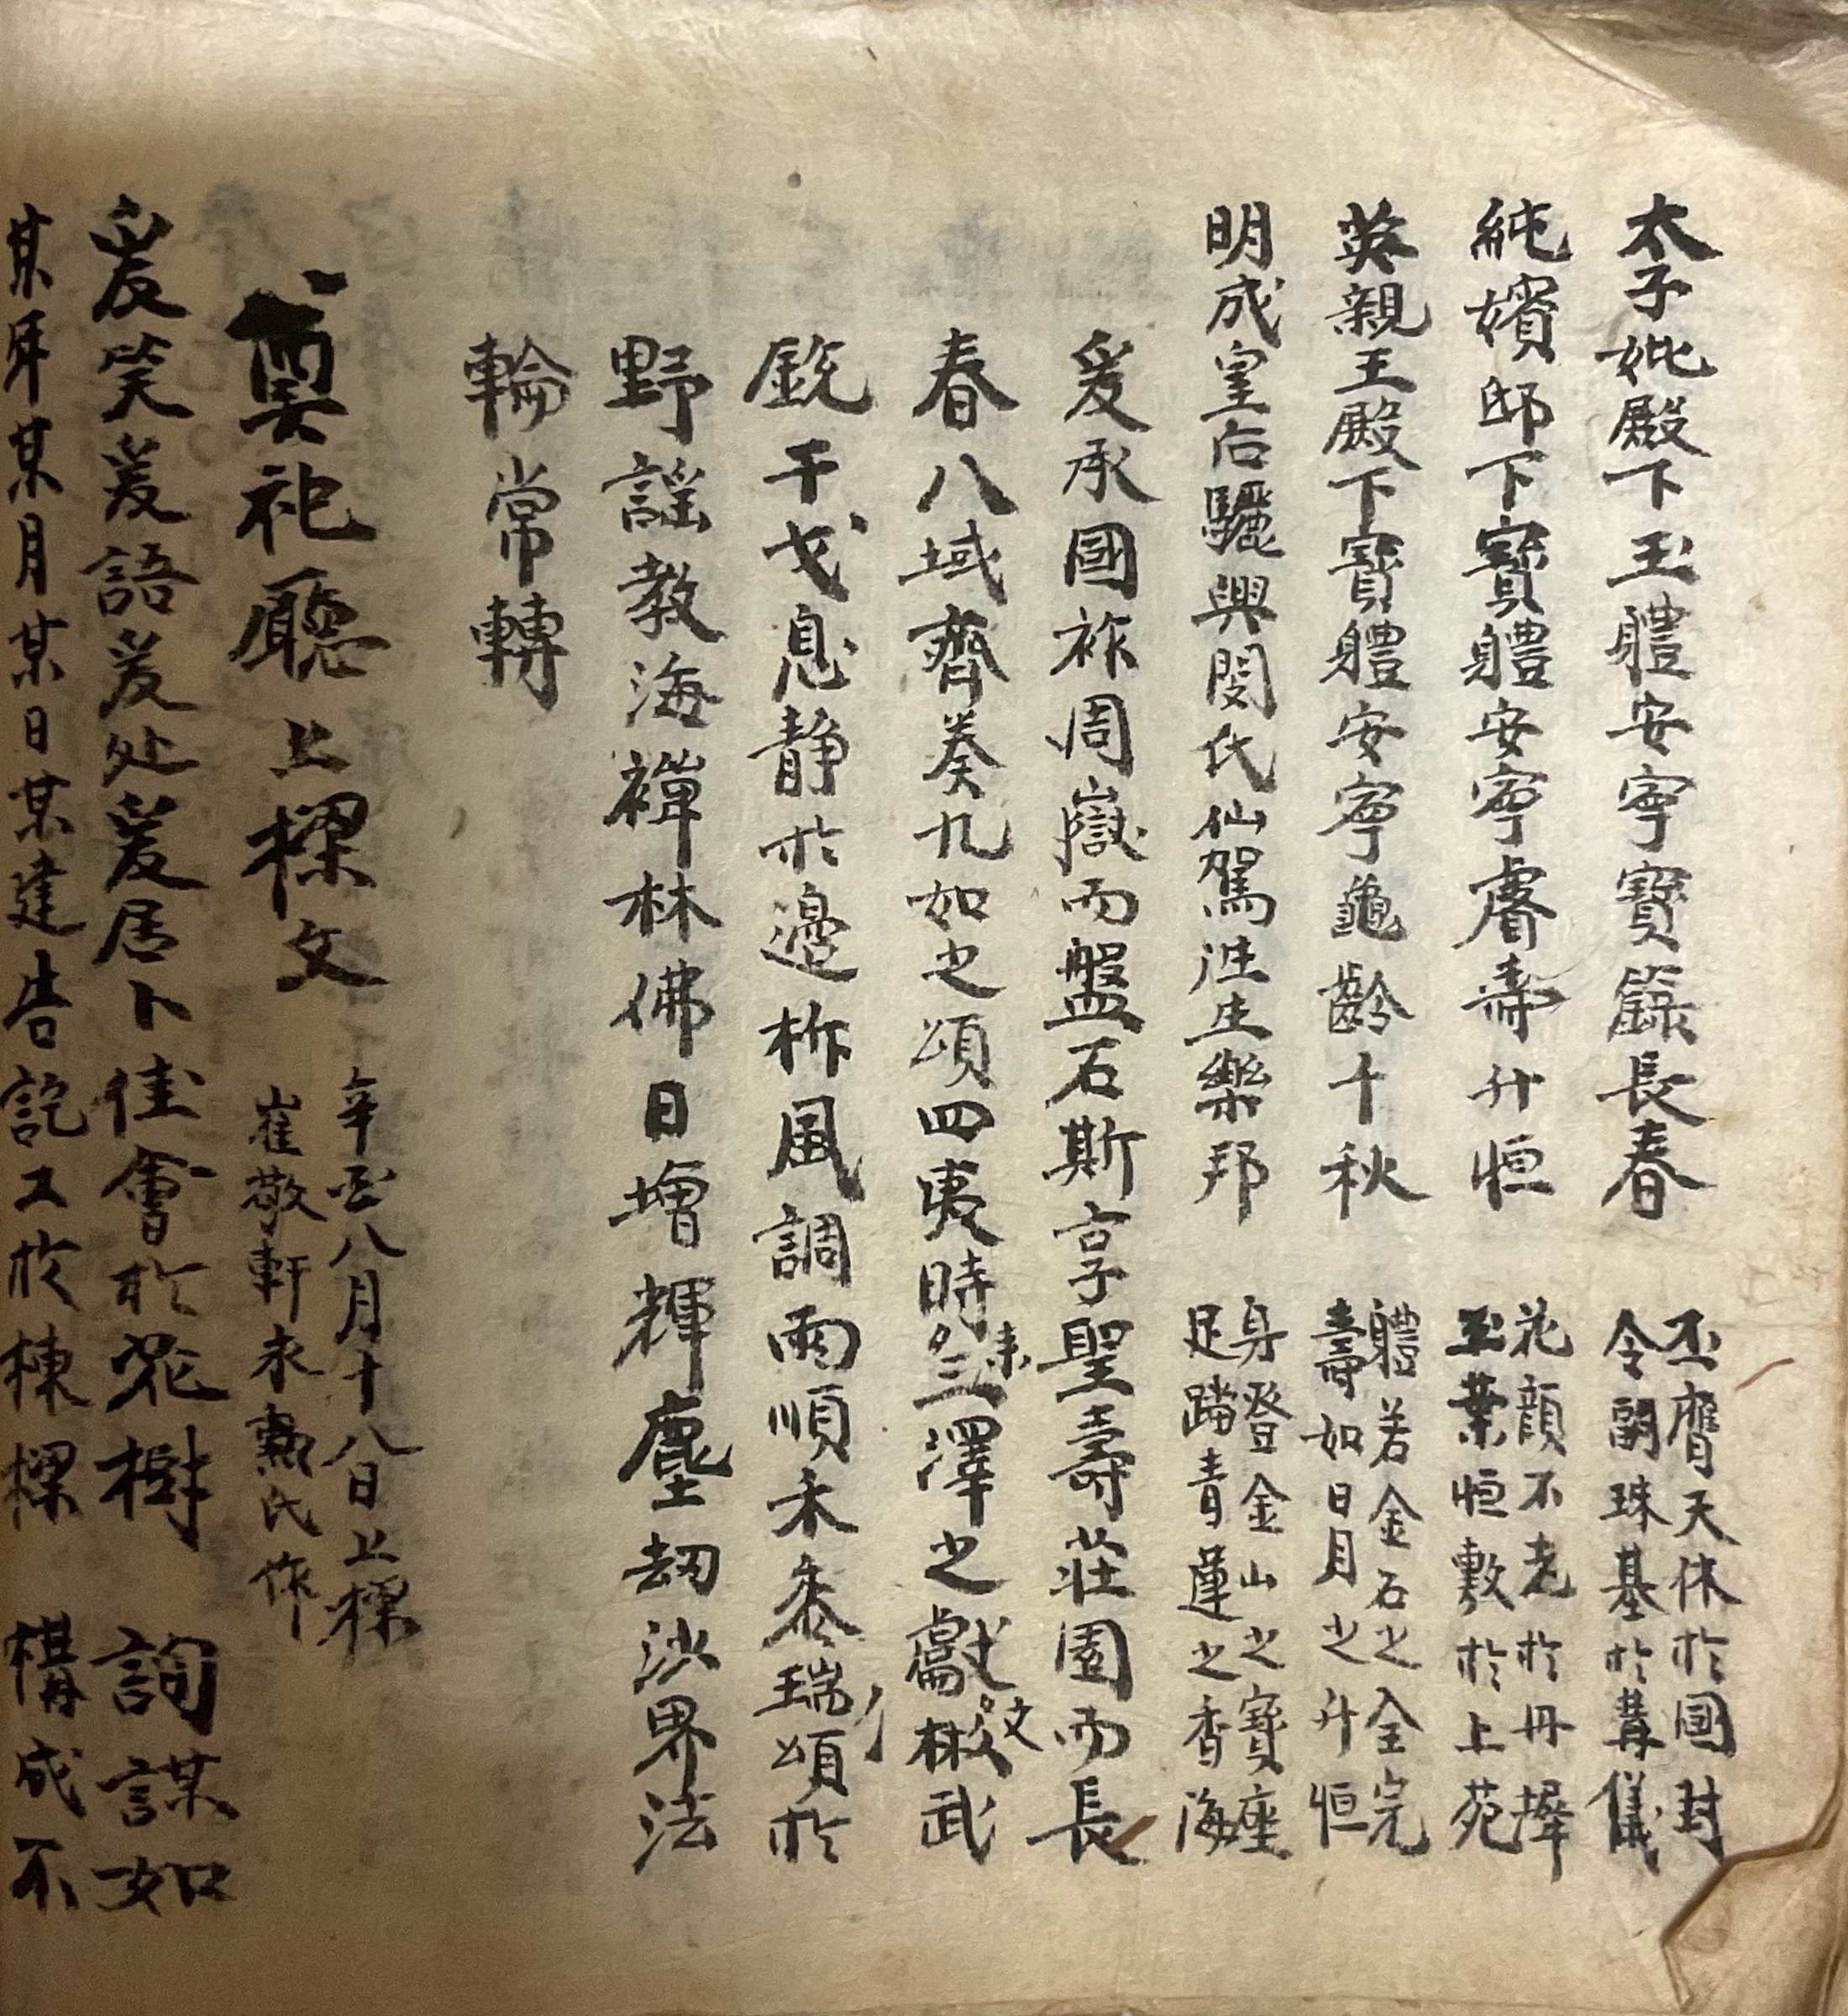 太子妣殿下玉體安寧寶籙長春
丕膺天休於國封
令嗣珠基於冓儀
純嬪邸下寶體安寧睿壽升恒
花顔不老於丹墀
玉葉恒敷於上苑
英親王殿下寶體安寧龜齡千秋
體若金石之全完
壽如日月之升恒
明成皇后驪興閔氏仙駕迬生樂邦
身登金山之寶座
足踏青蓮之香海
爰承國祚周嶽而盤石斯享聖壽莊園而長
春八域齊奏九如之頌四夷時来三澤之獻文武
銃干戈息静於邊柞風調雨順禾黍瑞頌於
野謡教海禪林佛日增輝塵劫沙界法
輪常轉
奠祀廳上樑文
辛酉八月十八日上樑
崔敬軒永勳氏作
爰笑爰語爰处爰居卜佳會於花樹 詢謀如
某年某月某日某建告訖工於棟樑 構成不